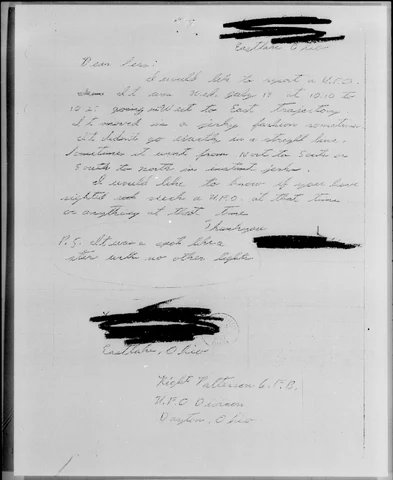 Eastlake, Ohio
Dear Sirs:
I would like to report a U.F.O.
It was Wed. July 19 at 10:10 to
10:25 going West to East trajectory
It moved in a jerky fashion sometimes
it didn't go exactly in a straight line.
Sometimes it went from North to South or
South to north in instant jerks.
I would like to know if you have
sighted such a U.F.O. at that time
or anything at that time
Thankyou
P.S. It was a spot like a
star with no other lights
Eastlake, Ohio
Wright Patterson A.F.B.
U.F.O. Division
Dayton, Ohio